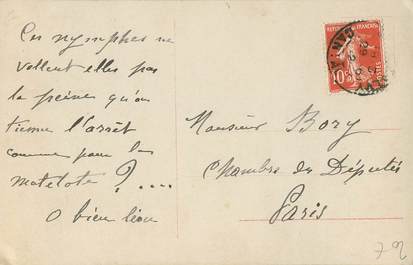 Ces nymphes ne
vallent elles pas
la peine qu'on
tienne l'arrêt
comme pour la
matelote ? ....
O bien léon
Monsieur Bory
Chambre des Députés
Paris
REPUBLIQUE FRANÇAISE
10c
POSTES